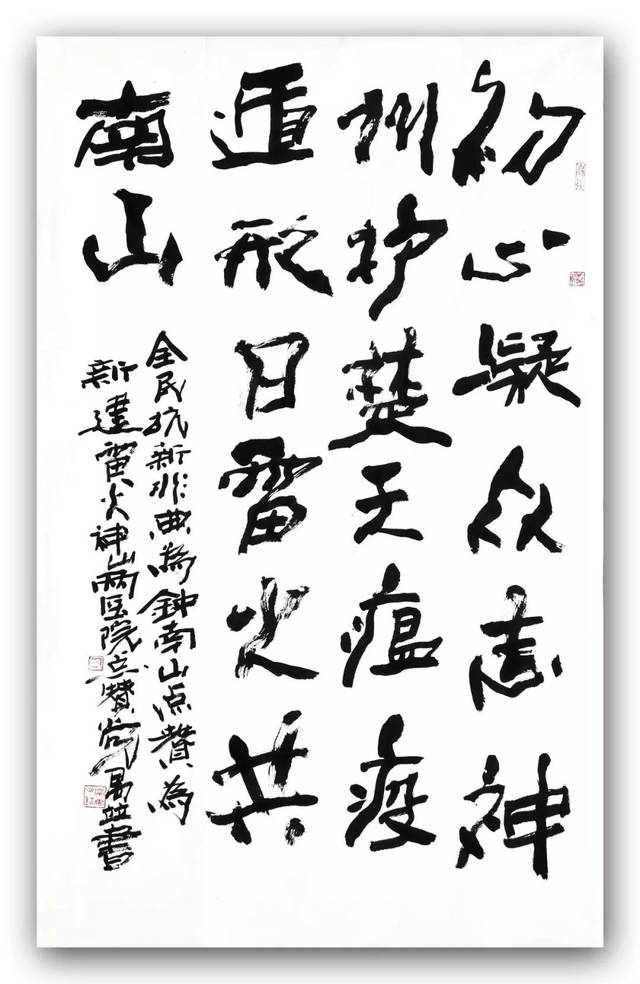 初心凝众志神
州护楚天瘟疫
遁形日雷火共
南山
全民抗新非典为钟南山点赞为
新建雷火神山两医院点赞
书